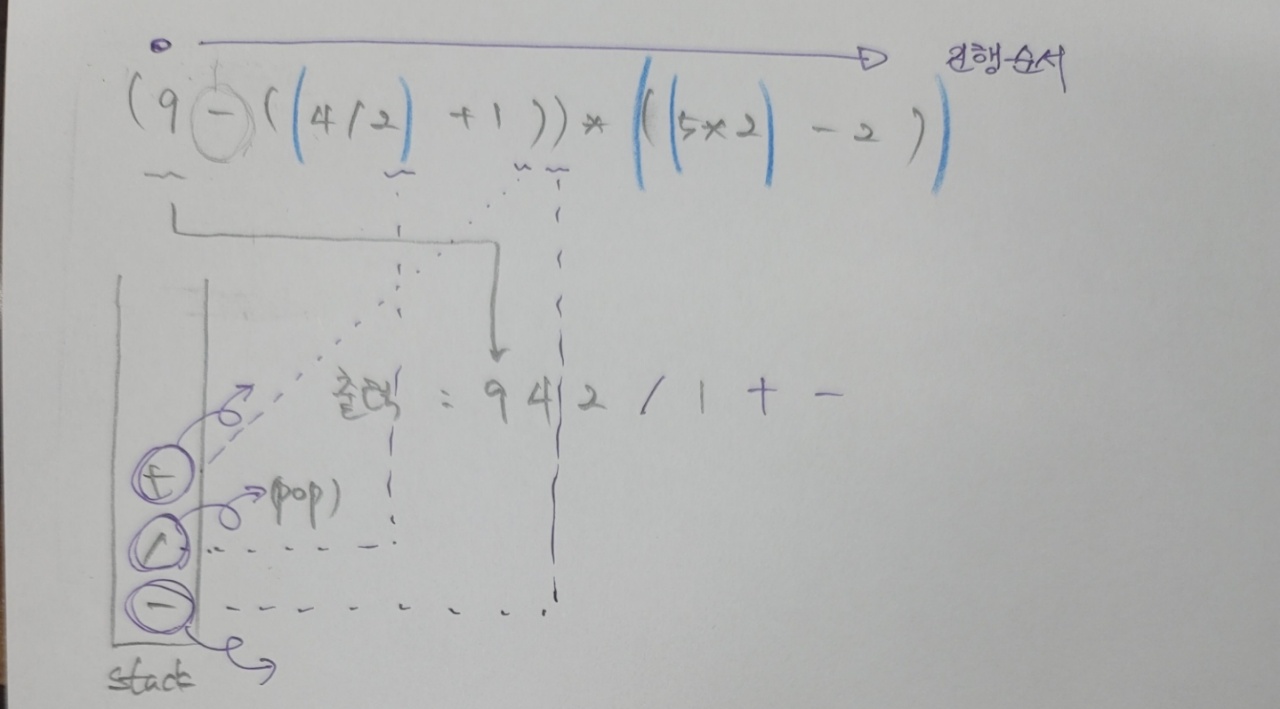 진행순서
(9 - ((4/2) +1)) * ((5*2) - 2)
출력 : 9 4 2 / 1 + -
+
(pop)
/
-
stack